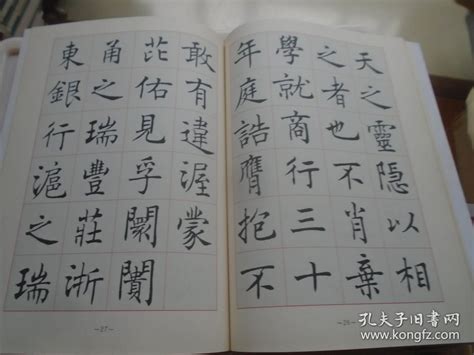 天之靈隱以相
之者也不肖棄
學就商行三十
年庭誥膺抱不
敢有違渥蒙
芘佑見孚闤闠
甬之瑞豐莊浙
東銀行滬之瑞
—26—
—27—
孔夫子旧书网
www.kongfz.com